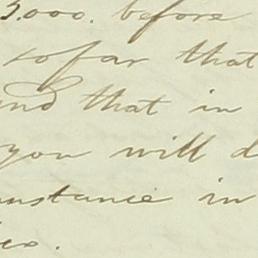 3.000. before
so far that
and that in
you will d
umstance in